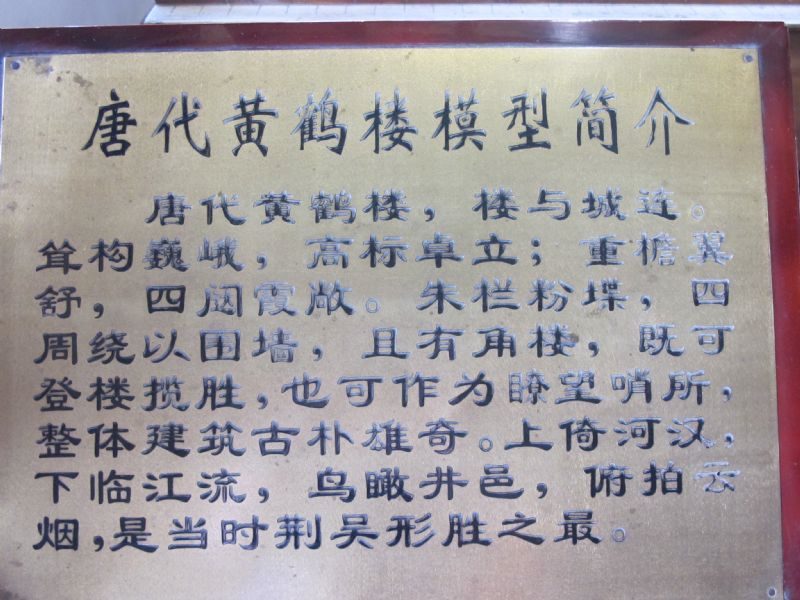 唐代黄鹤楼模型简介
唐代黄鹤楼，楼与城连。
耸构巍峨，高标卓立；重檐翼
舒，四闼霞敞。朱栏粉堞，四
周绕以围墙，且有角楼，既可
登楼揽胜，也可作为瞭望哨所，
整体建筑古朴雄奇。上倚河汉，
下临江流，鸟瞰井邑，俯拍云
烟，是当时荆吴形胜之最。